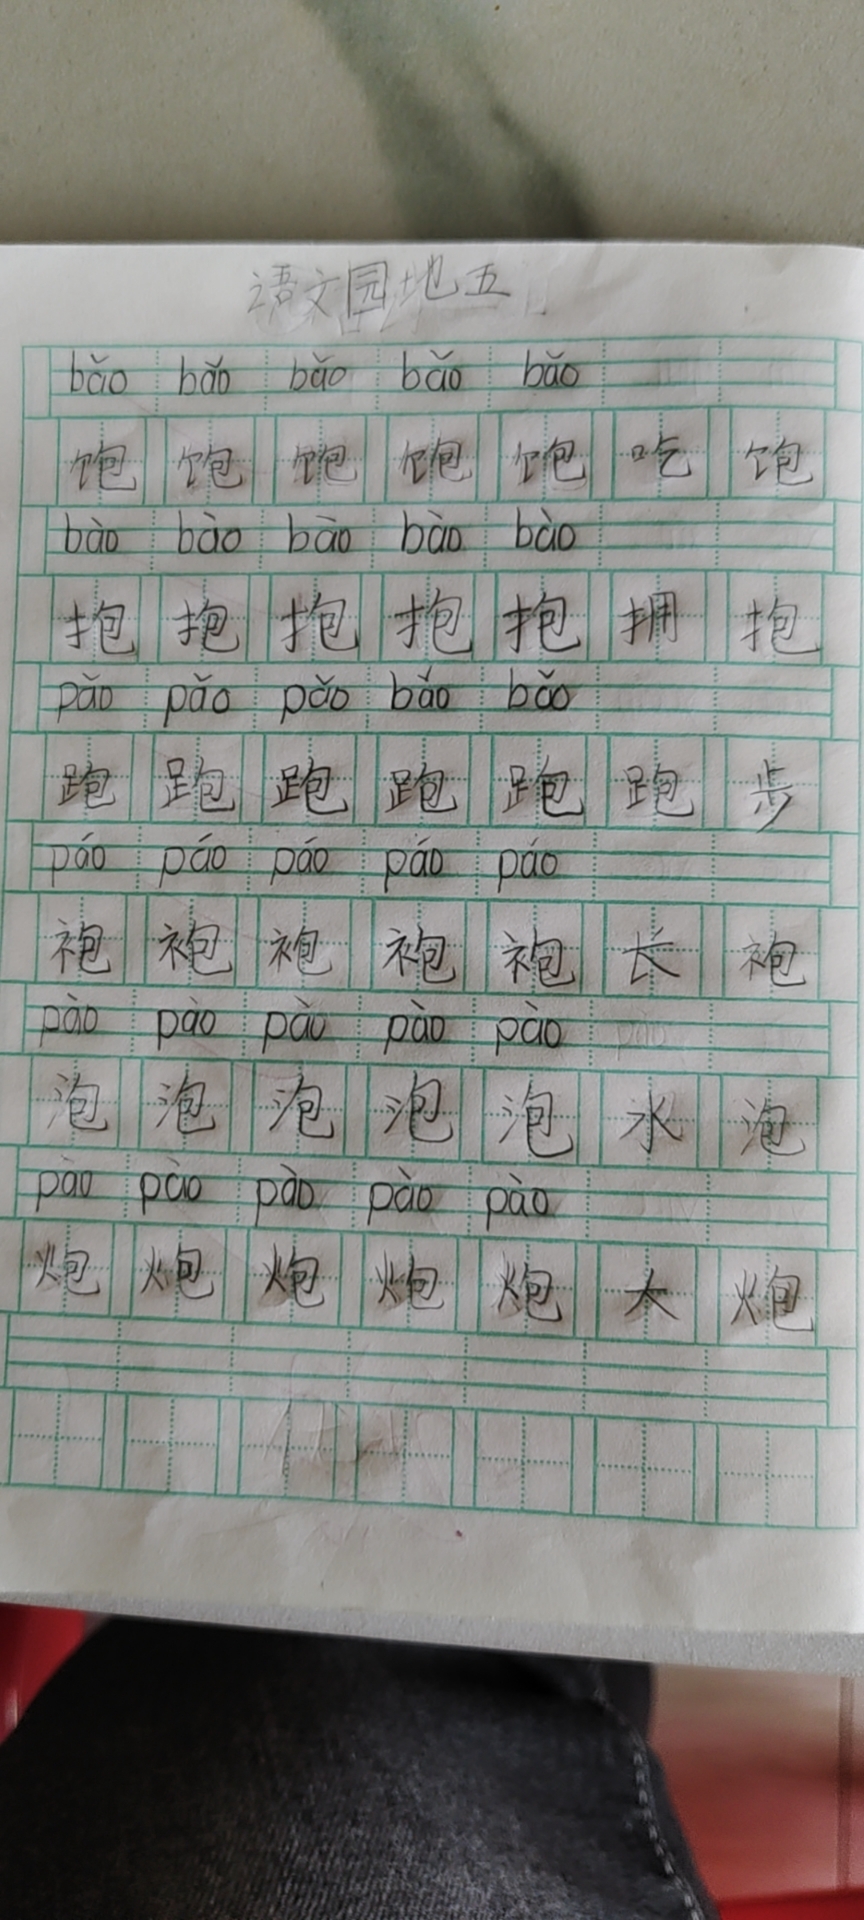 语文园地五
bǎo bǎo bǎo bǎo bǎo
饱 饱 饱 饱 饱 吃 饱
bào bào bào bào bào
抱 抱 抱 抱 抱 拥 抱
pǎo pǎo pǎo bǎo bǎo
跑 跑 跑 跑 跑 跑 步
páo páo páo páo páo
袍 袍 袍 袍 袍 长 袍
pào pào pào pào pào
泡 泡 泡 泡 泡 水 泡
pào pào pào pào pào
炮 炮 炮 炮 炮 大 炮